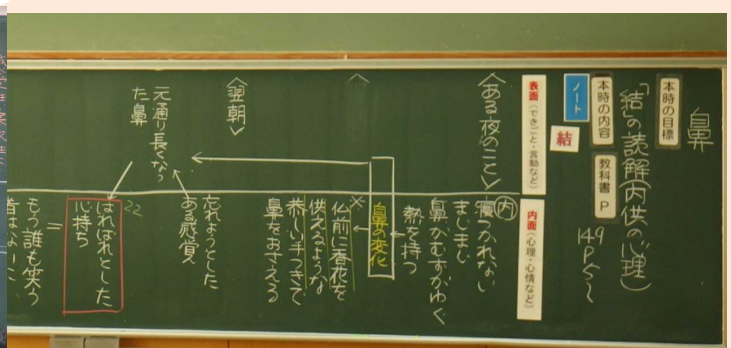 鼻
本時の目標
「結」の読解(内供の心理)
本時の内容
教科書 P
149
P5〜
ノート
結
表面(できごと・言動など)
内面(心理・心情など)
〈ある夜のこと〉
内
寝つかれない
まじまじ
鼻がむずがゆく
熱を持つ
鼻の変化
※
仏前に香花を
供えるような
恭しい手つきで
鼻をおさえる
〈翌朝〉
忘れようとした
ある感覚
元通り長くなっ
た鼻
22
はればれとした
心持ち
=
もう誰も笑う